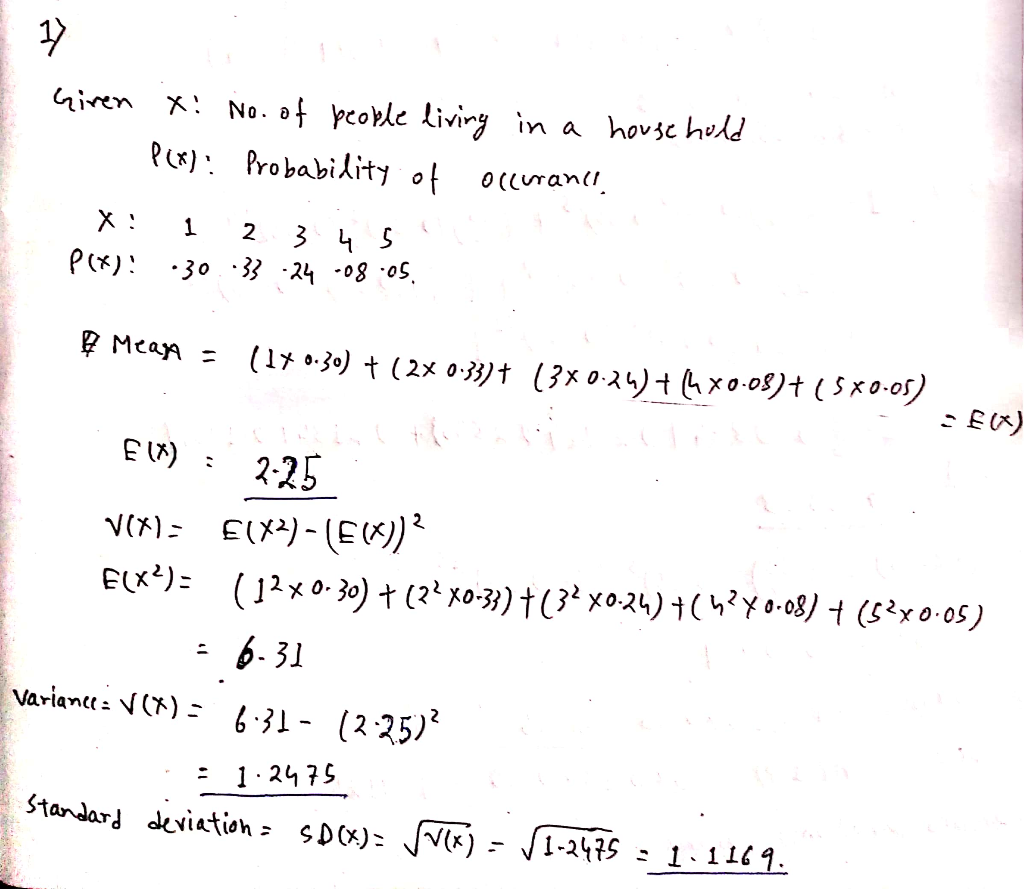 1)
Given X: No. of people living in a household
P(x): Probability of occurance.
X: 1 2 3 4 5
P(x): .30 .33 .24 .08 .05.
Mean = (1x 0.30) + (2x 0.33)+ (3x0.24)+(4x0.08)+(5x0.05) = E(x)
E(X) = 2.25
V(X) = E(X²)-(E(X))²
E(X²)= (1²x0.30)+(2²x0.33)+(3²x0.24)+(4²x0.08)+(5²x0.05)
= 6.31
Variance = V(X) = 6.31 - (2.25)²
= 1.2475
Standard deviation = SD(X)= √V(x) = √1.2475 = 1.1169.